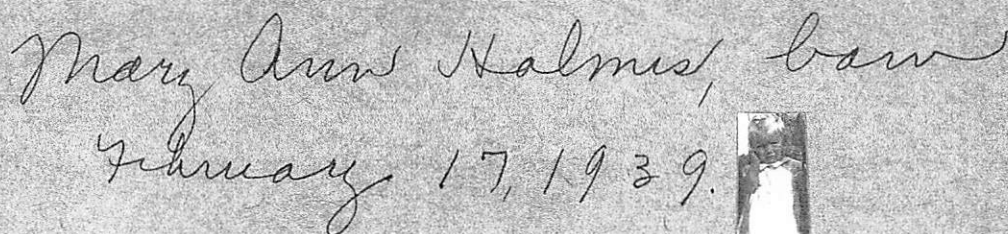 Mary Ann Holmes, born
February 17, 1939.